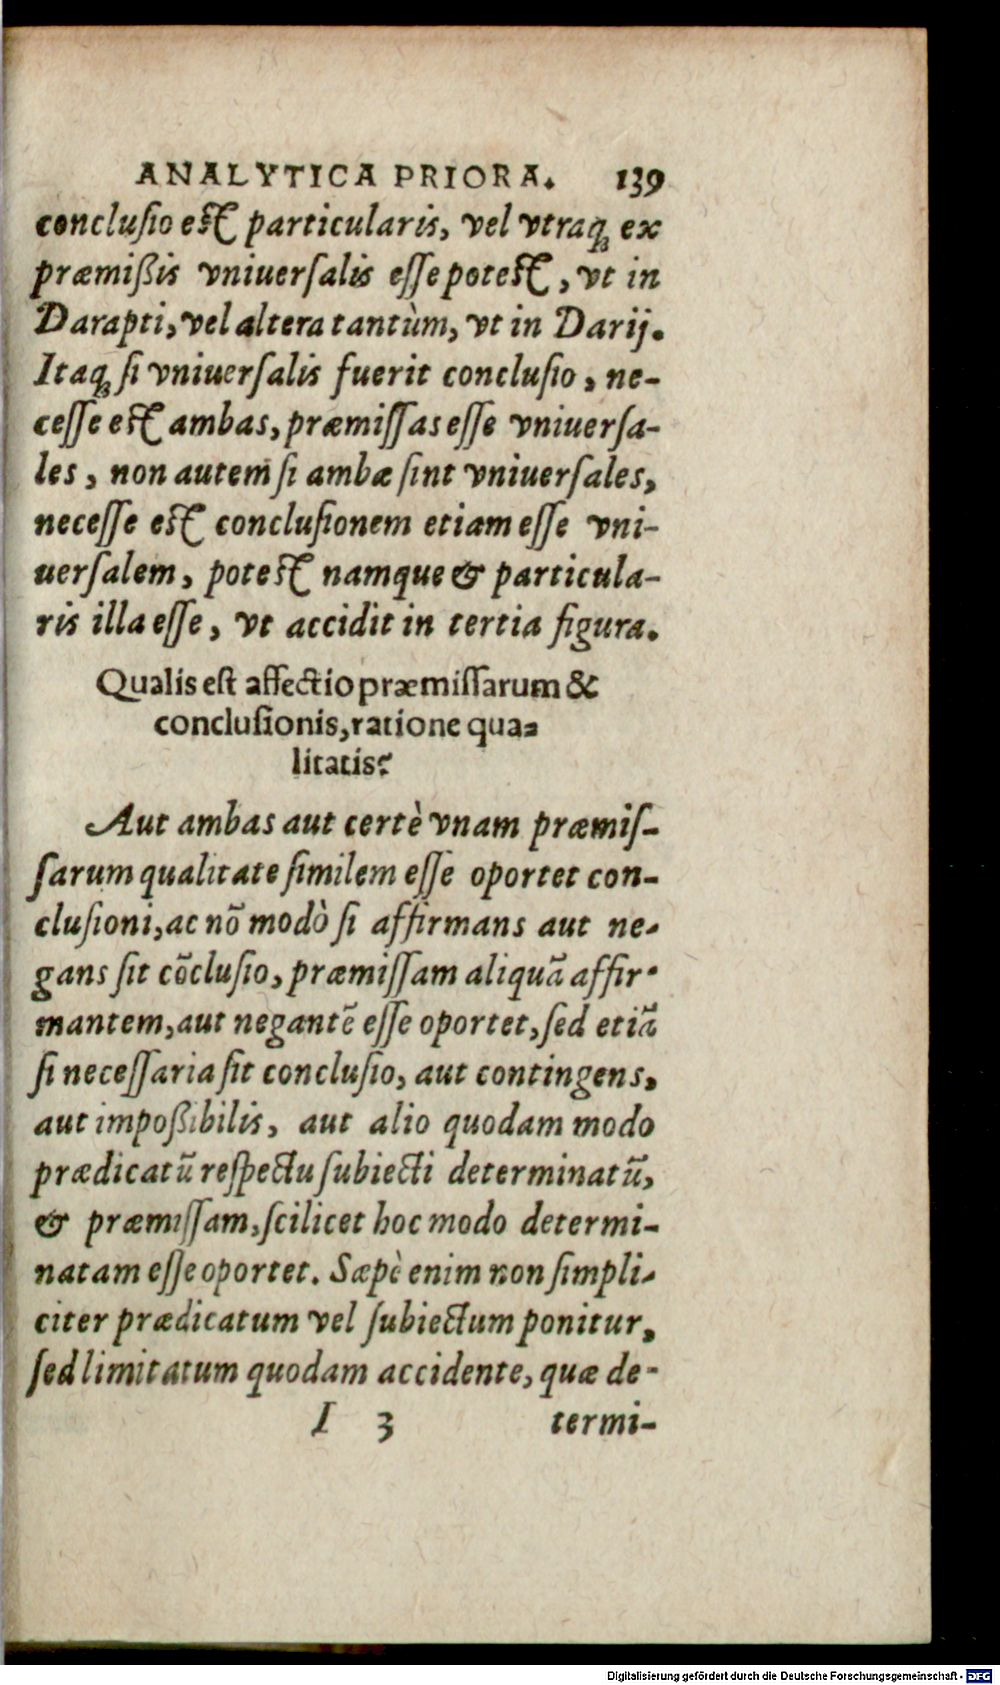 ANALYTICA PRIORA. 139
concluſio eſt particularis, vel vtraq; ex
præmißis vniuerſalis eſſe poteſt, vt in
Darapti, vel altera tantùm, vt in Darij.
Itaq; ſi vniuerſalis fuerit concluſio, ne-
ceſſe eſt ambas, præmiſſas eſſe vniuerſa-
les, non autem ſi ambæ ſint vniuerſales,
neceſſe eſt concluſionem etiam eſſe vni-
uerſalem, poteſt namque & particula-
ris illa eſſe, vt accidit in tertia figura.
Qualis eſt affectio præmiſſarum &
concluſionis, ratione qua-
litatis?
Aut ambas aut certè vnam præmiſ-
ſarum qualitate ſimilem eſſe oportet con-
cluſioni, ac nō modò ſi affirmans aut ne-
gans ſit cōcluſio, præmiſſam aliquā affir-
mantem, aut negantē eſſe oportet, ſed etiā
ſi neceſſaria ſit concluſio, aut contingens,
aut impoßibilis, aut alio quodam modo
prædicatū reſpectu ſubiecti determinatū,
& præmiſſam, ſcilicet hoc modo determi-
natam eſſe oportet. Sæpè enim non ſimpli-
citer prædicatum vel ſubiectum ponitur,
ſed limitatum quodam accidente, quæ de-
I 3 termi-
Digitalisierung gefördert durch die Deutsche Forschungsgemeinschaft - DFG